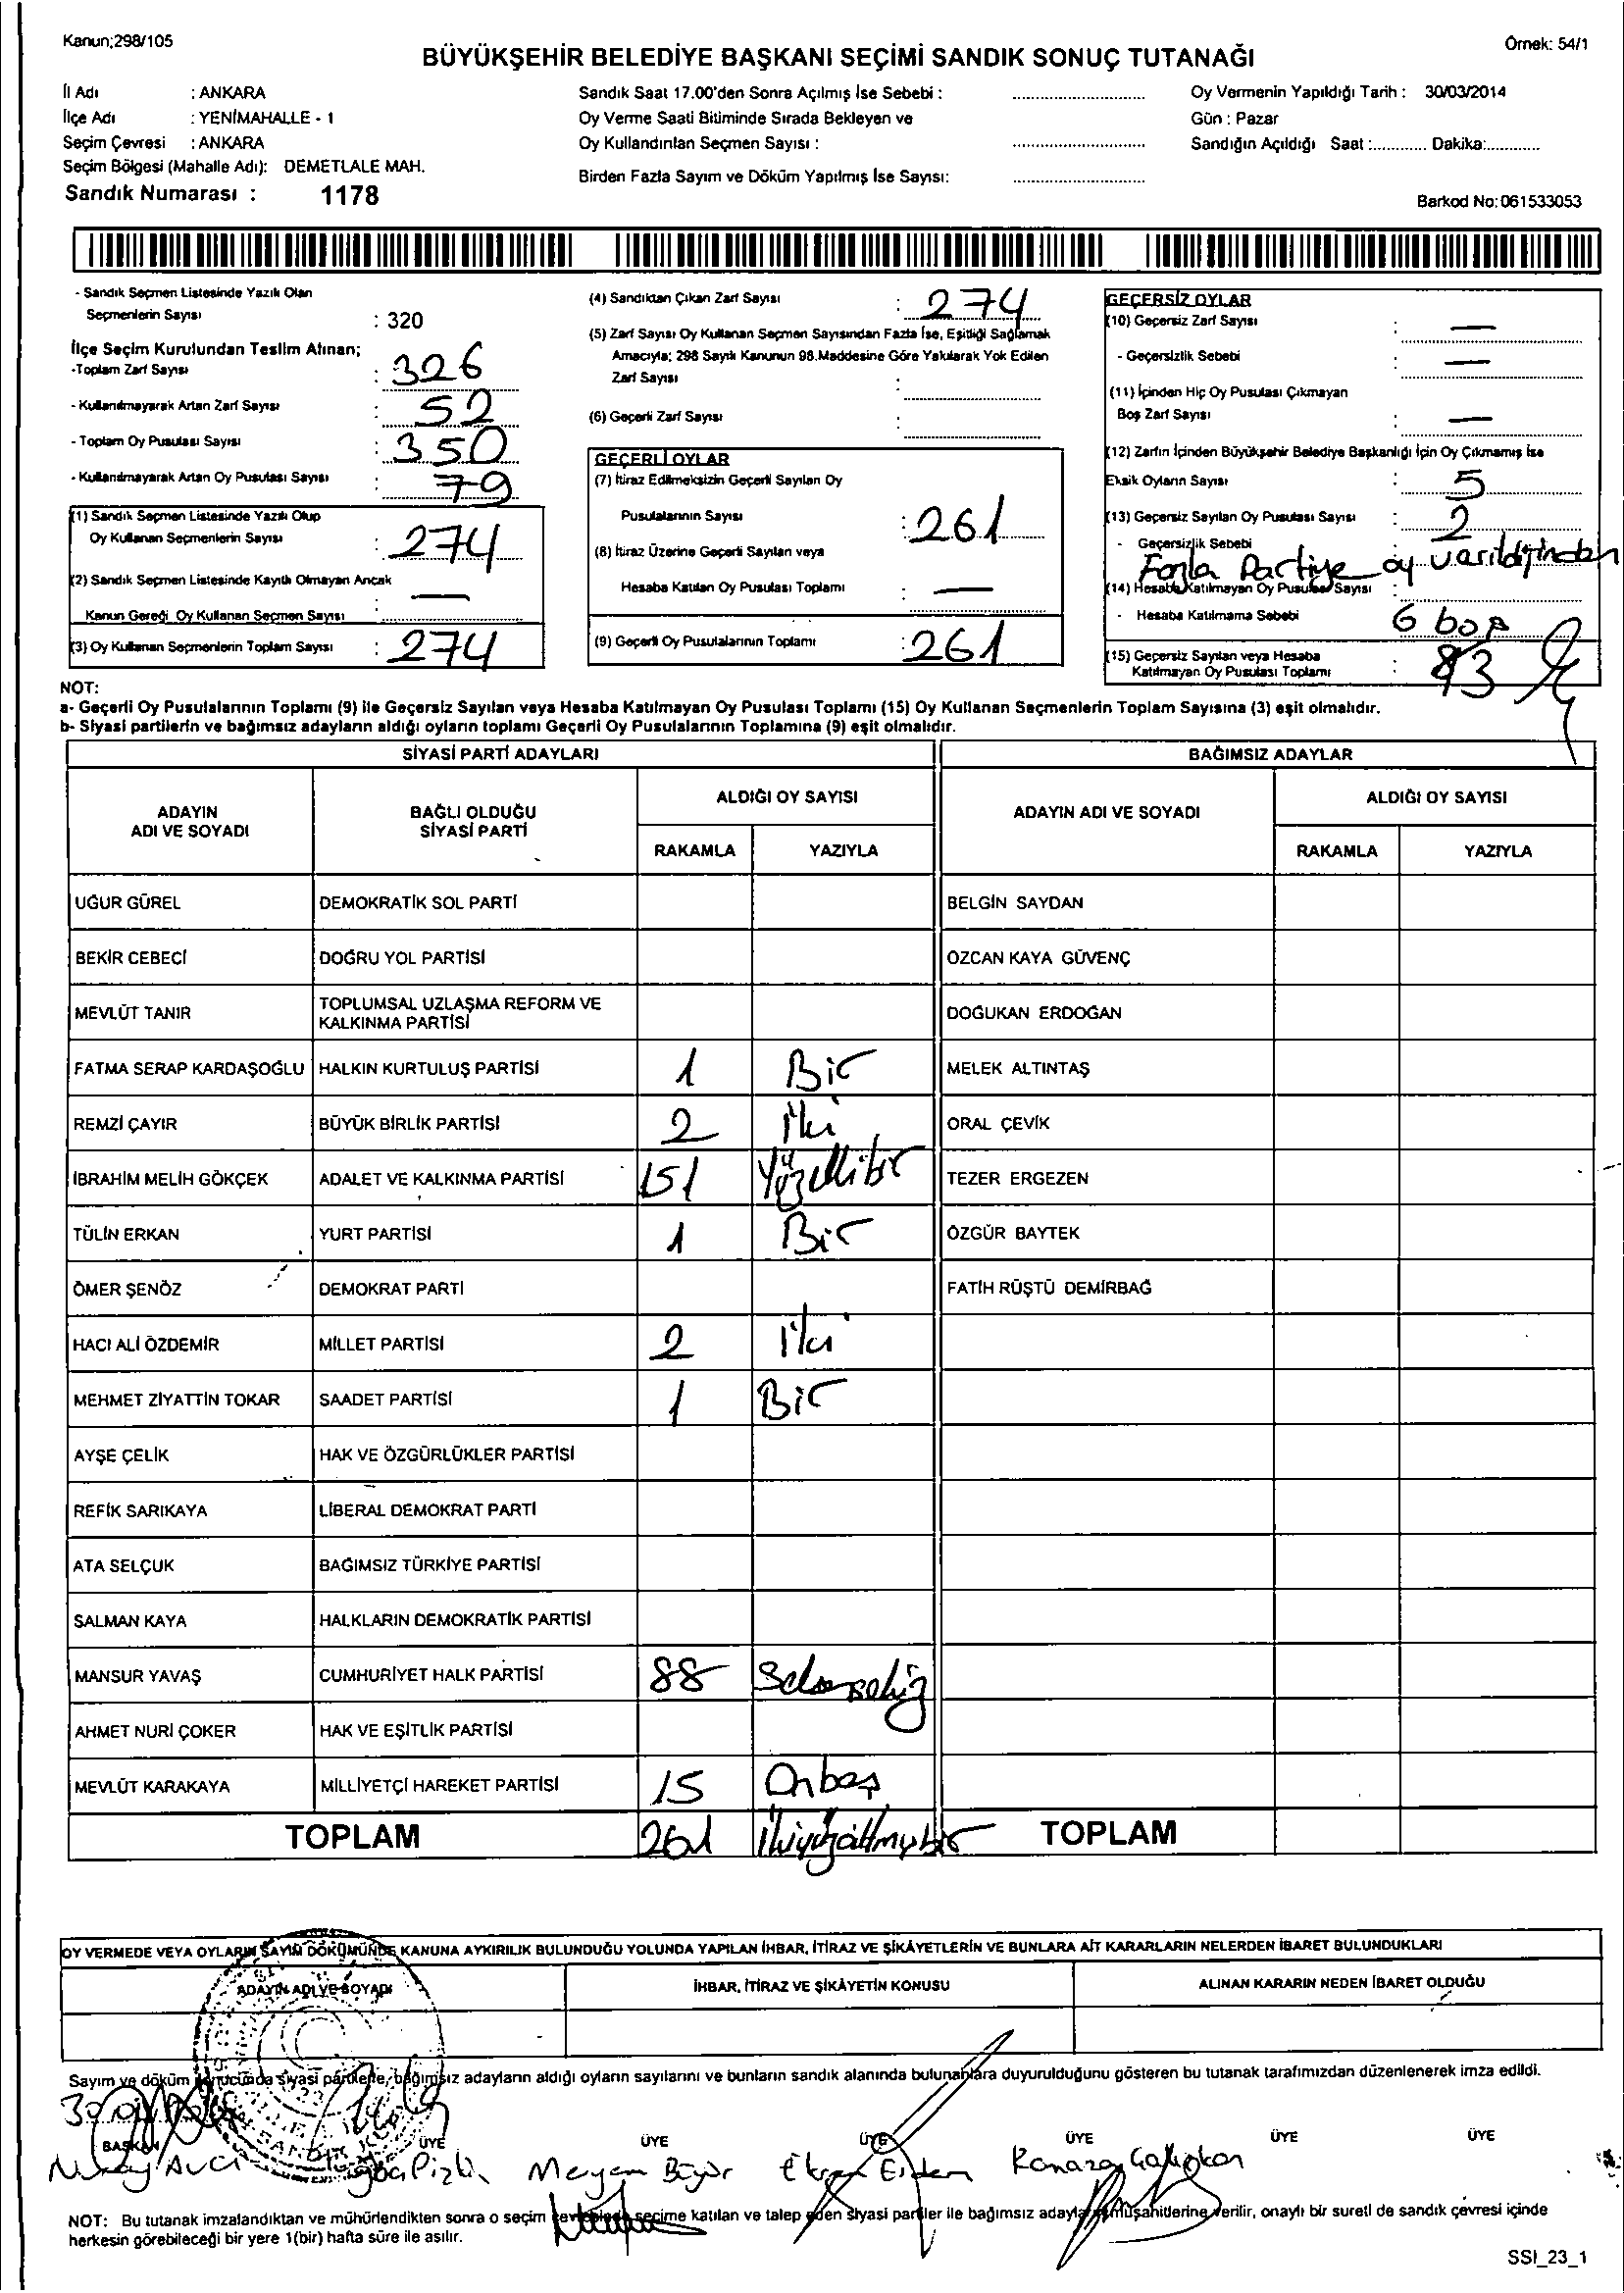 Kanun;298/105
Örnek: 54/1
BÜYÜKŞEHİR BELEDİYE BAŞKANI SEÇİMİ SANDIK SONUÇ TUTANAĞI
İl Adı : ANKARA
İlçe Adı : YENİMAHALLE - 1
Seçim Çevresi : ANKARA
Seçim Bölgesi (Mahalle Adı): DEMETLALE MAH.
Sandık Numarası : 1178
Sandık Saat 17.00'den Sonra Açılmış İse Sebebi :
Oy Verme Saati Bitiminde Sırada Bekleyen ve
Oy Kullandırılan Seçmen Sayısı :
Birden Fazla Sayım ve Döküm Yapılmış İse Sayısı:
Oy Vermenin Yapıldığı Tarih : 30/03/2014
Gün : Pazar
Sandığın Açıldığı Saat :............ Dakika:............
Barkod No:061533053
- Sandık Seçmen Listesinde Yazılı Olan
Seçmenlerin Sayısı : 320
İlçe Seçim Kurulundan Teslim Alınan;
-Toplam Zarf Sayısı : 326
- Kullanılmayarak Artan Zarf Sayısı : 52
- Toplam Oy Pusulası Sayısı : 350
- Kullanılmayarak Artan Oy Pusulası Sayısı : 79
(1) Sandık Seçmen Listesinde Yazılı Olup
Oy Kullanan Seçmenlerin Sayısı : 274
(2) Sandık Seçmen Listesinde Kayıtlı Olmayan Ancak
Kanun Gereği Oy Kullanan Seçmen Sayısı : —
(3) Oy Kullanan Seçmenlerin Toplam Sayısı : 274
(4) Sandıktan Çıkan Zarf Sayısı : 274
(5) Zarf Sayısı Oy Kullanan Seçmen Sayısından Fazla İse, Eşitliği Sağlamak
Amacıyla; 298 Sayılı Kanunun 98.Maddesine Göre Yakılarak Yok Edilen
Zarf Sayısı :
(6) Geçerli Zarf Sayısı :
GEÇERLİ OYLAR
(7) İtiraz Edilmeksizin Geçerli Sayılan Oy
Pusulalarının Sayısı : 261
(8) İtiraz Üzerine Geçerli Sayılan veya
Hesaba Katılan Oy Pusulası Toplamı : —
(9) Geçerli Oy Pusulalarının Toplamı : 261
GEÇERSİZ OYLAR
(10) Geçersiz Zarf Sayısı : —
- Geçersizlik Sebebi : —
(11) İçinden Hiç Oy Pusulası Çıkmayan
Boş Zarf Sayısı : —
(12) Zarfın İçinden Büyükşehir Belediye Başkanlığı İçin Oy Çıkmamış İse
Eksik Oyların Sayısı : 5
(13) Geçersiz Sayılan Oy Pusulası Sayısı : 2
- Geçersizlik Sebebi
Fazla Partiye oy verildiğinden
(14) Hesaba Katılmayan Oy Pusulası Sayısı :
- Hesaba Katılmama Sebebi 6 boş
(15) Geçersiz Sayılan veya Hesaba
Katılmayan Oy Pusulası Toplamı :
NOT:
a- Geçerli Oy Pusulalarının Toplamı (9) ile Geçersiz Sayılan veya Hesaba Katılmayan Oy Pusulası Toplamı (15) Oy Kullanan Seçmenlerin Toplam Sayısına (3) eşit olmalıdır.
b- Siyasi partilerin ve bağımsız adayların aldığı oyların toplamı Geçerli Oy Pusulalarının Toplamına (9) eşit olmalıdır.
SİYASİ PARTİ ADAYLARI
BAĞIMSIZ ADAYLAR
ADAYIN ADI VE SOYADI
BAĞLI OLDUĞU SİYASİ PARTİ
ALDIĞI OY SAYISI
RAKAMLA YAZIYLA
ADAYIN ADI VE SOYADI
ALDIĞI OY SAYISI
RAKAMLA YAZIYLA
UĞUR GÜREL DEMOKRATİK SOL PARTİ BELGİN SAYDAN
BEKİR CEBECİ DOĞRU YOL PARTİSİ ÖZCAN KAYA GÜVENÇ
MEVLÜT TANIR TOPLUMSAL UZLAŞMA REFORM VE KALKINMA PARTİSİ DOĞUKAN ERDOĞAN
FATMA SERAP KARDAŞOĞLU HALKIN KURTULUŞ PARTİSİ 1 Bir MELEK ALTINTAŞ
REMZİ ÇAYIR BÜYÜK BİRLİK PARTİSİ 2 İki ORAL ÇEVİK
İBRAHİM MELİH GÖKÇEK ADALET VE KALKINMA PARTİSİ 151 Yüzellibir TEZER ERGEZEN
TÜLİN ERKAN YURT PARTİSİ 1 Bir ÖZGÜR BAYTEK
ÖMER ŞENÖZ DEMOKRAT PARTİ FATİH RÜŞTÜ DEMİRBAĞ
HACI ALİ ÖZDEMİR MİLLET PARTİSİ 2 İki
MEHMET ZİYATTİN TOKAR SAADET PARTİSİ 1 Bir
AYŞE ÇELİK HAK VE ÖZGÜRLÜKLER PARTİSİ
REFİK SARIKAYA LİBERAL DEMOKRAT PARTİ
ATA SELÇUK BAĞIMSIZ TÜRKİYE PARTİSİ
SALMAN KAYA HALKLARIN DEMOKRATİK PARTİSİ
MANSUR YAVAŞ CUMHURİYET HALK PARTİSİ 88 Seksensekiz
AHMET NURİ ÇOKER HAK VE EŞİTLİK PARTİSİ
MEVLÜT KARAKAYA MİLLİYETÇİ HAREKET PARTİSİ 15 Onbeş
TOPLAM 261 İkiyüzaltmışbir TOPLAM
OY VERMEDE VEYA OYLARIN SAYIM DÖKÜMÜNDE KANUNA AYKIRILIK BULUNDUĞU YOLUNDA YAPILAN İHBAR, İTİRAZ VE ŞİKÂYETLERİN VE BUNLARA AİT KARARLARIN NELERDEN İBARET BULUNDUKLARI
ADAYIN ADI VE SOYADI İHBAR, İTİRAZ VE ŞİKÂYETİN KONUSU ALINAN KARARIN NEDEN İBARET OLDUĞU
Sayım ve döküm sonucunda siyasi partilerle, bağımsız adayların aldığı oyların sayılarını ve bunların sandık alanında bulunanlara duyurulduğunu gösteren bu tutanak tarafımızdan düzenlenerek imza edildi.
BAŞKAN ÜYE ÜYE ÜYE ÜYE ÜYE ÜYE
Nuray Avcı Meryem Ekrem Erdem
NOT: Bu tutanak imzalandıktan ve mühürlendikten sonra o seçim çevresinde seçime katılan ve talep eden siyasi partiler ile bağımsız adayların müşahitlerine verilir, onaylı bir sureti de sandık çevresi içinde
herkesin görebileceği bir yere 1(bir) hafta süre ile asılır.
SSI_23_1